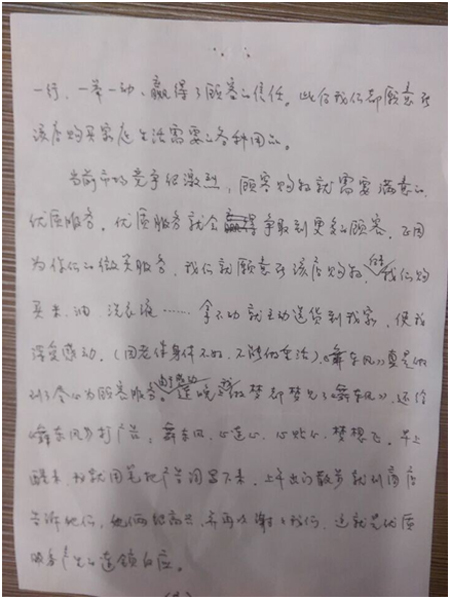 一行、一举一动、赢得了顾客的信任。此后我们都愿意到
该店购买家庭生活需要的各种用品。
当前市场竞争很激烈,顾客购物就需要满意的
优质服务。优质服务就会争取到更多的顾客,正因
为你们的微笑服务,我们就愿意到该店购物,我们购
买米、油、洗衣液……拿不动就主动送货到我家,使我
深受感动。(因老伴身体不好,不能)《舞东风》真是做
到了全心为顾客服务。这晚我做梦都梦见了《舞东风》,还给
《舞东风》打广告,舞东风,心连心,心贴心,梦想飞。早上
醒来,我就用笔把广告词写下来,上午出门散步就到商店
告诉他们,他们很高兴,并再次谢谢我们,这就是优质
服务产生的连锁反应。